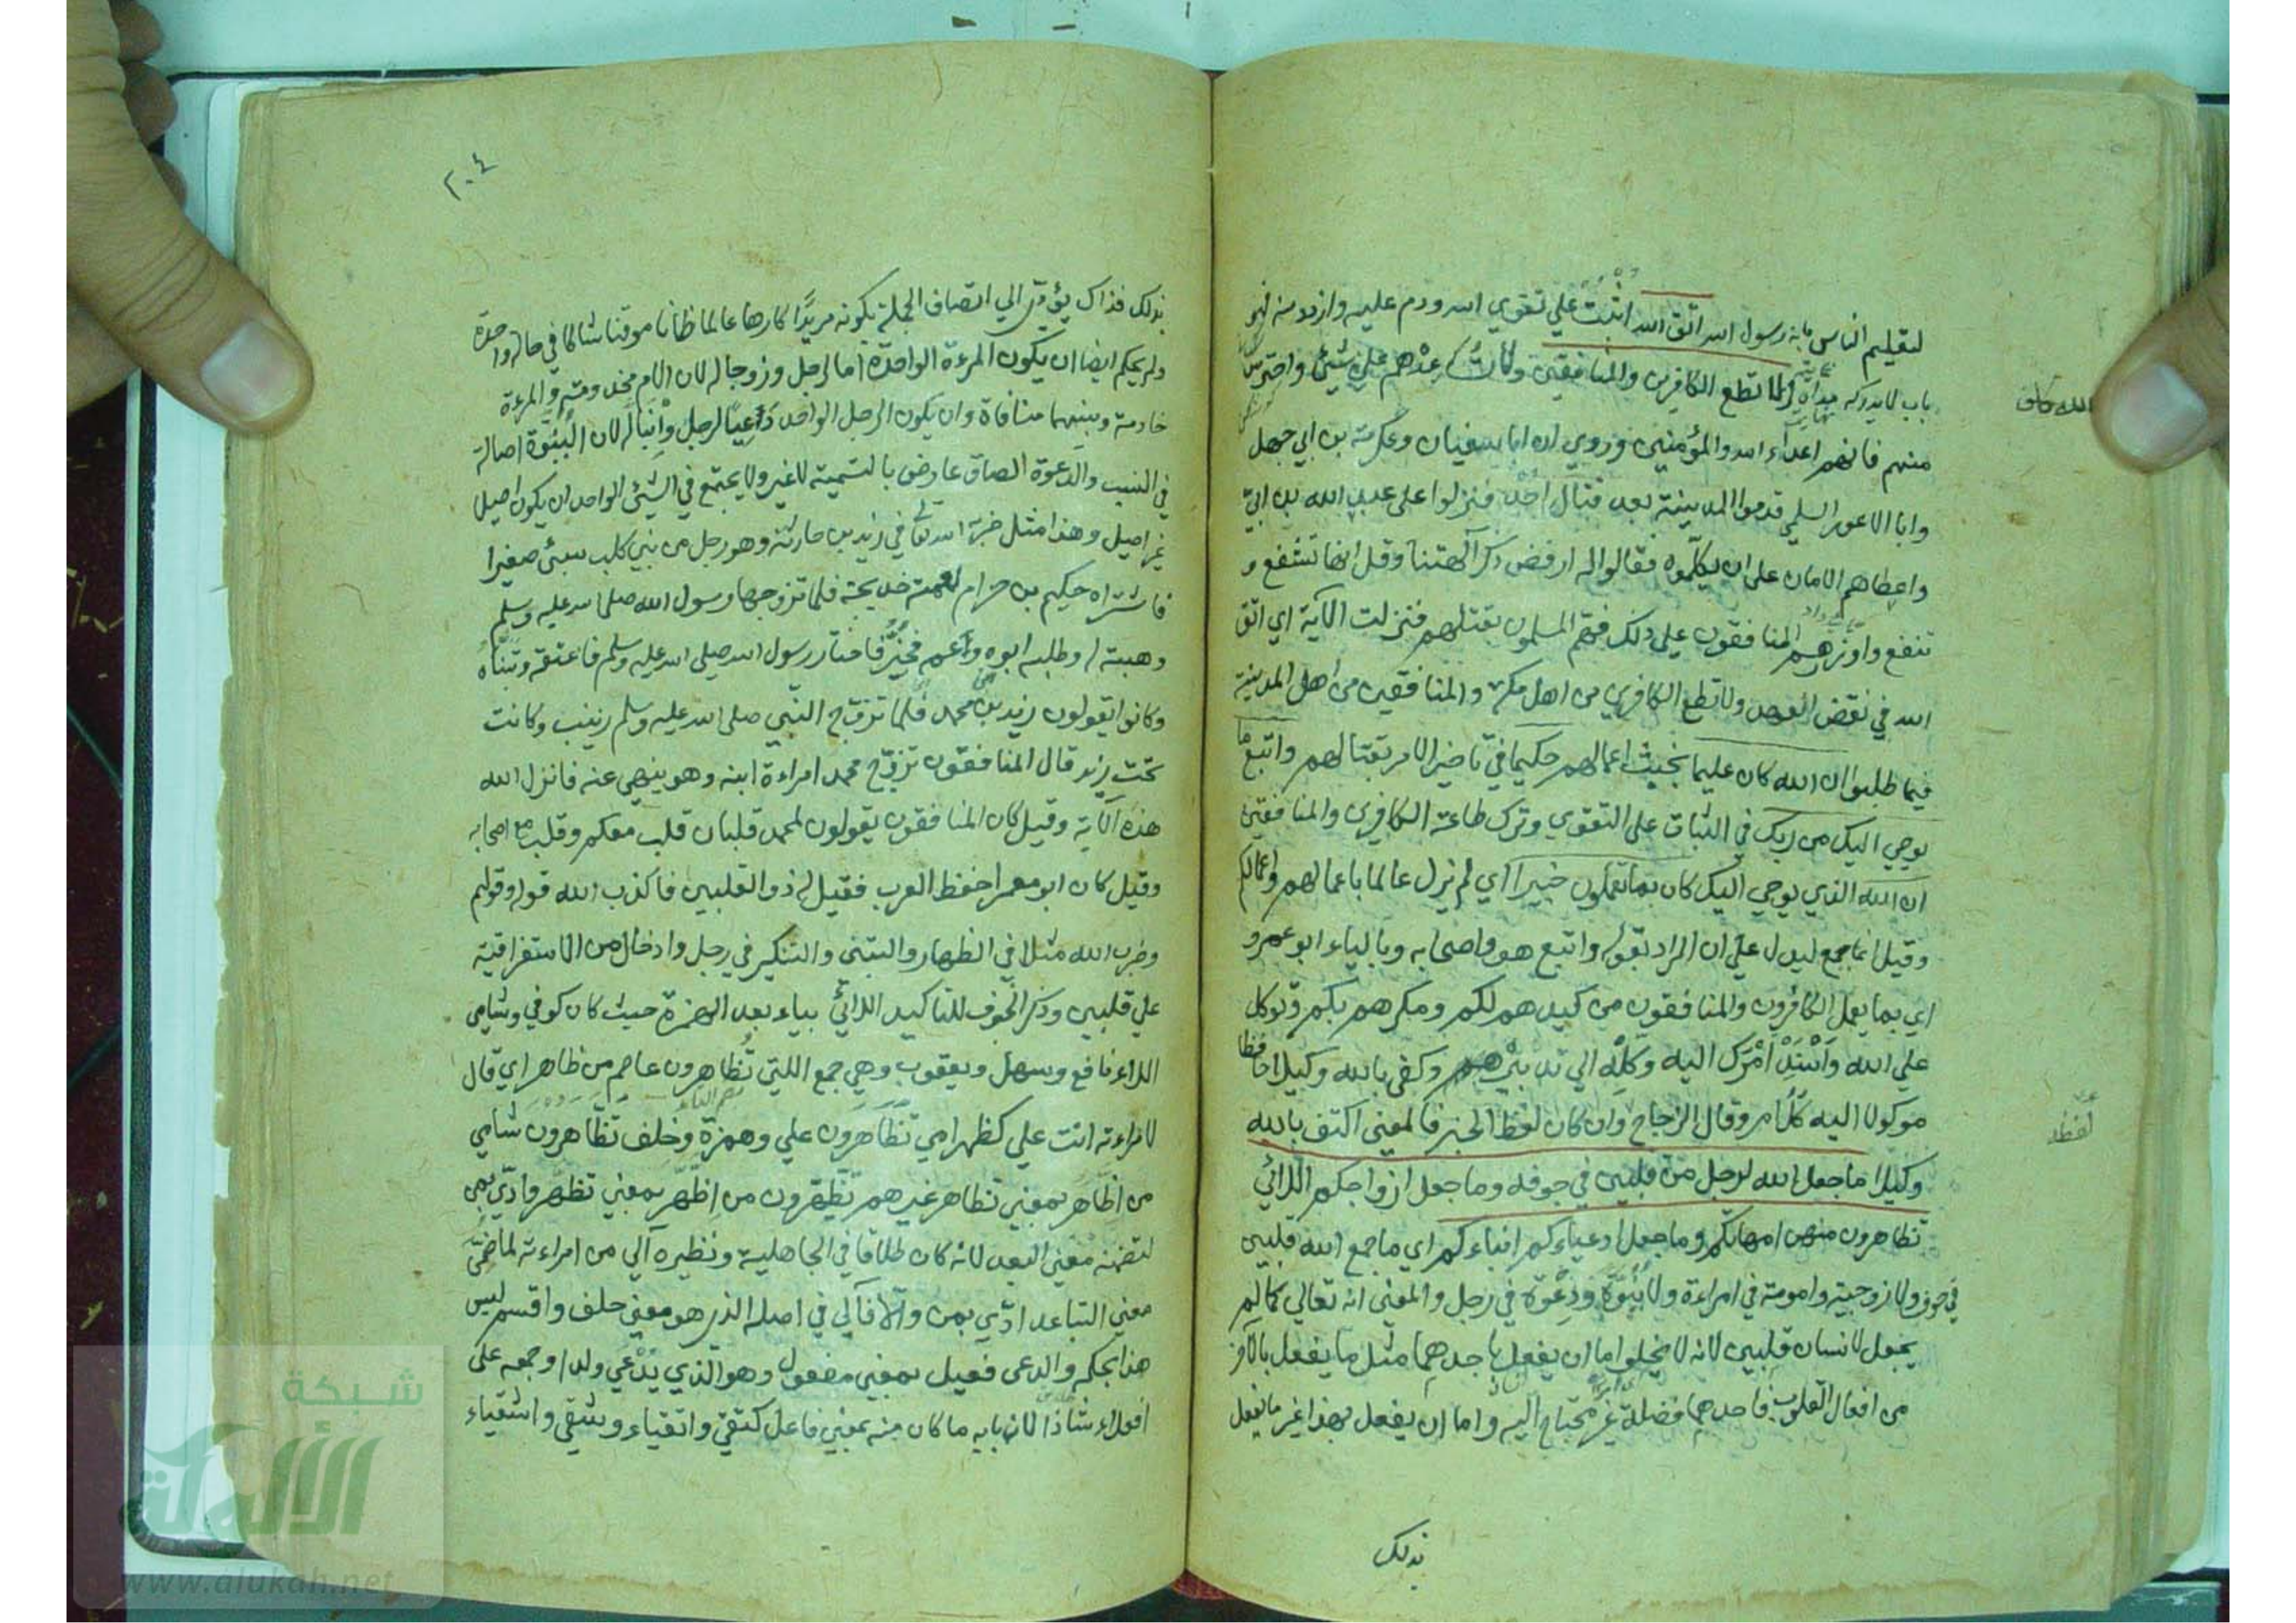 لتعليم الناس بانه رسول الله اتق الله اثبت علي تقوي الله ودم عليه وازدد منه فهو
باب لا يدرك مداه ولا تطع الكافرين والمنافقين ولا تساعدهم علي شيئ واحترس
منهم فانهم اعداء الله والمؤمنين وروي ان ابا سفيان وعكرمة بن ابي جهل
وابا الاعور السلمي قدموا المدينة بعد قتال احد فنزلوا علي عبد الله بن ابيّ
واعطاهم الامان على ان يكلّموه فقالوا له ارفض ذكر آلهتنا وقل انها تشفع و
تنفع وازرهم المنافقون علي ذلك فهمّ المسلمون بقتلهم فنزلت الآية اي اتق
الله في نقض العهد ولا تطع الكافرين من اهل مكة والمنافقين من اهل المدينة
فيما طلبوا ان الله كان عليما بخبث اعمالهم حكيما في تاخير الامر بقتالهم واتبع ما
يوحي اليك من ربك في الثبات على التقوي وترك طاعة الكافرين والمنافقين
ان الله الذي يوحي اليك كان بما تعملون خبيرا اي لم يزل عالما باعمالهم واعمالكم
وقيل انما جمع ليدل علي ان المراد بقوله واتبع هو واصحابه وبالياء ابو عمرو
اي بما يعمل الكافرون والمنافقون من كيدهم لكم ومكرهم بكم وتوكل
علي الله واسند امرك اليه وكله الي تدبيره وكفى بالله وكيلا حافظا
موكولا اليه كل امر وقال الزجاج وان كان لفظ الخبر فالمعني اكتف بالله
وكيلا ما جعل الله لرجل من قلبين في جوفه وما جعل ازواجكم اللائي
تظاهرون منهن امهاتكم وما جعل ادعياءكم ابناءكم اي ما جمع الله قلبين
في جوف ولا زوجية وامومة في امراءة ولا بنوّة ودعوة في رجل والمعني انه تعالي كما لم
يجعل لانسان قلبين لانه لا يخلوا اما ان يفعل باحدهما مثل ما يفعل بالآخر
من افعال القلوب فاحدهما فضلة غير محتاج اليه واما ان يفعل بهذا غير ما يفعل
بذلك
٢٠٤
بذلك فذاك يؤدّي الي اتصاف الجملة بكونه مريدا كارها عالما ظانا موقنا شاكا في حالة واحدة
ولم يحكم ايضا ان يكون المرءة الواحدة اما لرجل وزوجا له لان الام مخدومة والمرءة
خادمة وبينهما منافاة وان يكون الرجل الواحد دعيا لرجل وابنا له لان البنوّة اصالة
في النسب والدعوة الصاق عارض بالتسمية لا غير ولا يجتمع في الشيئ الواحد ان يكون اصيل
غير اصيل وهذا مثل ضربه الله تعالي في زيد بن حارثة وهو رجل من بني كلب سبئ صغيرا
فاشتراه حكيم بن حزام لعمته خديجة فلما تزوجها رسول الله صلى الله عليه وسلم
وهبته له وطلبه ابوه وعمه فخير فاختار رسول الله صلي الله عليه وسلم فاعتقه وتبناه
وكانوا يقولون زيد بن محمد فلما تزوّج النبي صلى الله عليه وسلم زينب وكانت
تحت زيد قال المنافقون تزوّج محمد امراءة ابنه وهو ينهي عنه فانزل الله
هذه الآية وقيل كان المنافقون يقولون لمحمد قلبان قلب معكم وقلب مع اصحابه
وقيل كان ابو معمر احفظ العرب فقيل له ذو القلبين فاكذب الله قوله وقولهم
وضرب الله مثلا في الظهار والتبني والتنكير في رجل وادخال من الاستغراقية
علي قلبين وذكر الجوف للتاكيد اللائي بياء بعد الهمزة حيث كان كوفي وشامي
اللاء نافع وسهل ويعقوب وهي جمع اللتي تظاهرون عاصم من ظاهر اي قال
لامراءته انت علي كظهر امي تظاهرون علي وهمزة وخلف تظّاهرون شامي
من اظّاهر بمعني تظاهر غيرهم تظّهرون من اظّهر بمعني تظهّر وعدّي بمن
لتضمنه معني البعد لانه كان طلاقا في الجاهلية ونظيره آلي من امراءته لما ضمّن
معني التباعد عدّي بمن والا فآلي في اصله الذي هو معني حلف واقسم ليس
هذا بحكمه والدعى فعيل بمعني مفعول وهو الذي يدعي ولدا وجمعه على
افعلاء شاذا لان بابه ما كان منه بمعني فاعل كتقيّ واتقياء وشقي واشقياء
شبكة
الألوكة
www.alukah.net